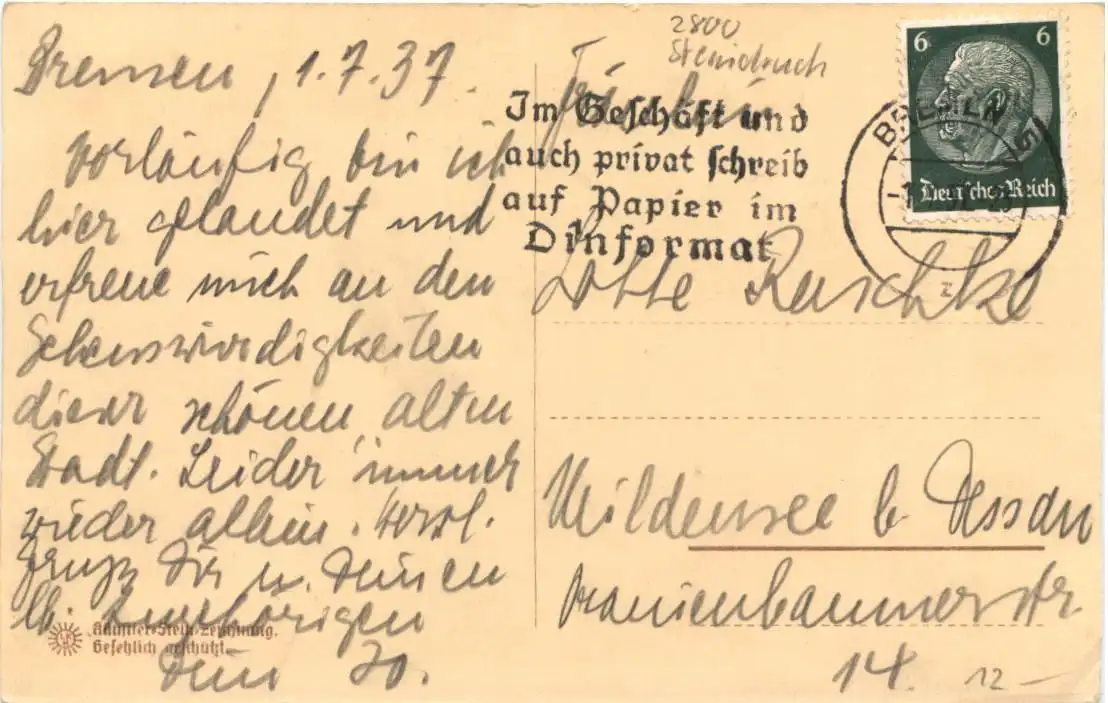 Bremen, 1.7.37.
Vorläufig bin ich
hier gelandet und
erfreue mich an den
Sehenswürdigkeiten
dieser schönen alten
Stadt. Leider immer
wieder allein. Herzl.
Gruß Dir u. Deinen
lb. Angehörigen
Dein
Künstler-Stein-Zeichnung.
Gesetzlich geschützt.
2800
Steindruck
Fräulein
Im Geschäft und
auch privat schreib
auf Papier im
Dinformat
6 6
Deutsches Reich
BREMEN 5
Lotte Raschke
Mildensee b Dessau
Oranienbaumerstr
14.
12 –